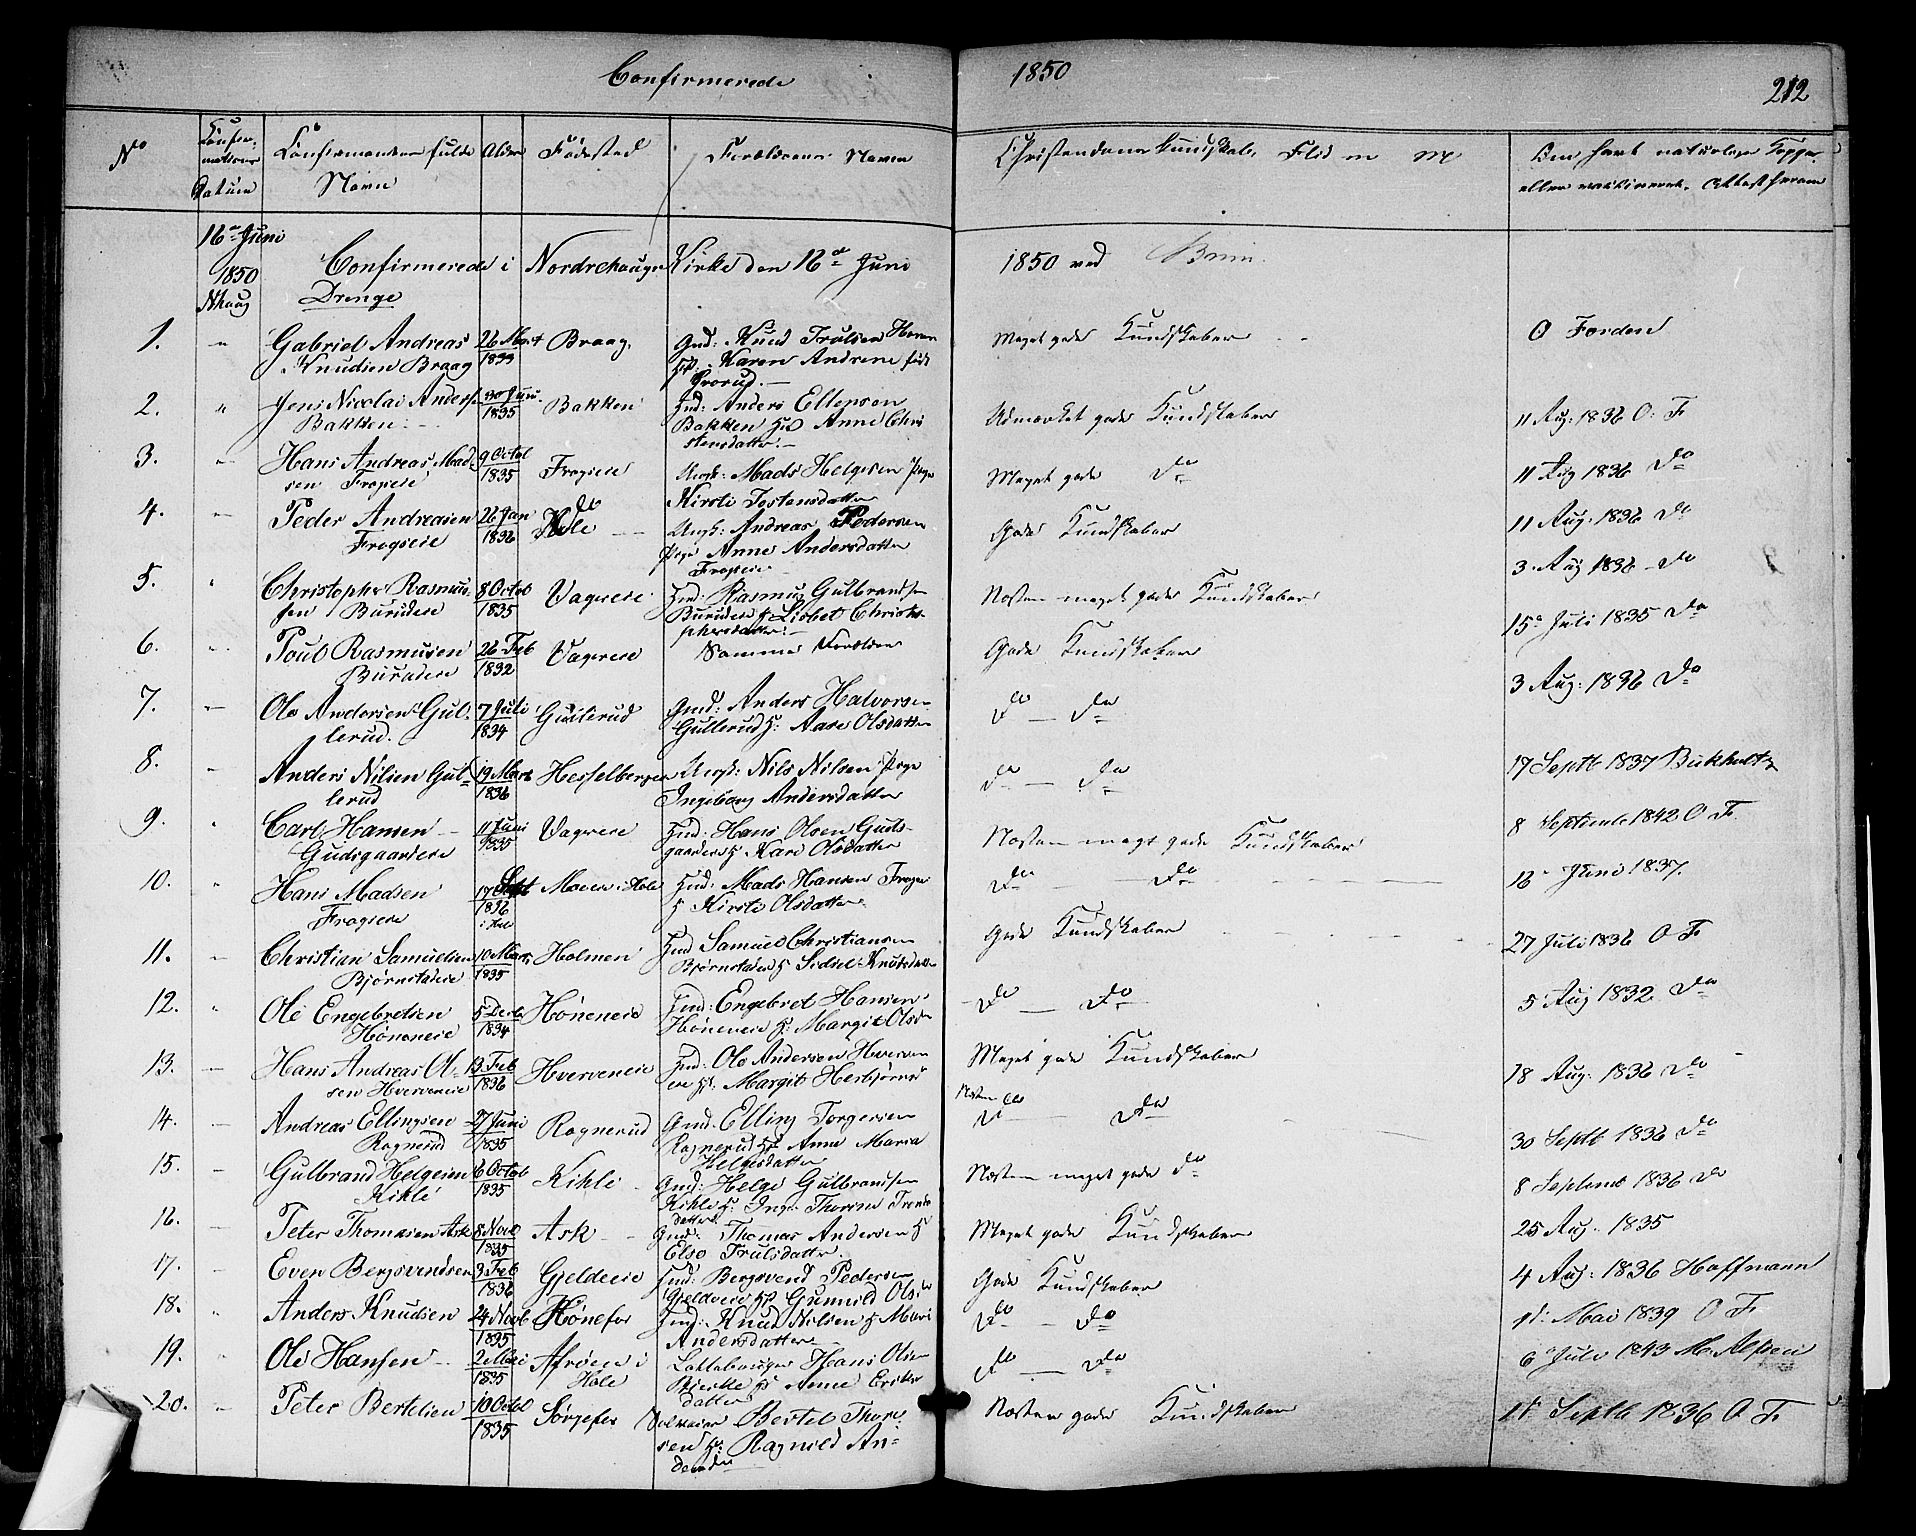 Confirmerede 1850 212
No
Confir-
mations
Datum
Confirmandens fulde
Navn
Alder
Fødested
Forældrenes Navne
Christendoms Kundskab, Flid
Om havt naturlige Kopper
eller vakcineret. Attest herom
16de Juni
1850
Nhaug
Confirmerede i Norderhougs Kirke den 16de Juni 1850 ved
Drenge
1. " Gabriel Andreas
Knudsen Braag
26 Mart
Braag.
Gmd: Knud Trulsen
H: Karen Andrine født
Meget gode Kundskaber
O Forden
2. " Jens Nicolai Anders.
Bakken
1835
Bakken
Hmd: Anders Ellensen
Bakken H: Anne Chri
stensdatter
Udmærket gode Kundskaber
11 Aug: 1836 O: F
3. " Hans Andreas Mad-
sen Frogeie
9 Octob
1835
Frogeie
Ungk: Mads Helgesen Pige
Kirsti Tostensdatter
Meget gode Do
11 Aug 1836 Do
4. " Peder Andreasen
Frogseie
26 Jan
1836
Do
Hole
Ungk: Andreas Pedersen
Pige Anne Andersdatter
Frogseie
Gode Kundskaber
11 Aug: 1836 Do
5. " Christopher Rasmus-
sen Burudeie
8 Octob
1835
Vagereie
Hmd: Rasmus Gulbrandsen
Burudeie H: Lisbet Christo-
phersdatter
Næsten meget gode Kundskaber
3 Aug 1836 Do
6. " Poul Rasmusen
Burudeie
26 Feb
1832
Vagereie
Samme Forældre
Gode Kundskaber
15de Juli 1835 Do
7. " Ole Andersen Gul-
lerud.
7 Juli
1834
Gullerud
Gmd: Anders Halvorsen
Gullerud H: Aase Olsdatter
Do Do
3 Aug: 1836 Do
8. " Anders Nilsen Gul-
lerud
19 Mart
1836
Hesselberg
Ungk: Nils Nilsen Pige
Ingeborg Andersdatter
Do Do
17 Septb 1837
9. " Carl Hansen
Gudsgaardeie
11 Juni
1835
Vagereie
Hmd: Hans Olsen Guds-
gaardeie H Kari Olsdatter
Næsten meget gode Kundskaber
8 Septemb 1842 O F.
10. " Hans Madsen
Frogseie
17 Sept
1836
i Hole
Moeie i Hole
Hmd: Mads Hansen Frogs
H Kirsti Olsdatter
Do Do
16 Juni 1837.
11. " Christian Samuelsen
Bjørnstadeie
10 Mart
1835
Holmen
Hmd Samuel Christiansen
Bjørnstadeie H Sidsel Knutsdatter
Gode Kundskaber
27 Juli 1836 O F.
12. " Ole Engebretsen
Høneneie
5 Decb
1834
Høneneie
Hmd: Engebret Hansen
Høneneie H: Margit Olsd
Do Do
5 Aug 1832 Do
13. " Hans Andreas Ol-
sen Hverveneie
13 Feb
1836
Hverveneie
Hmd: Ole Andersen Hverven
eie H: Margit Herbjørnsd
Meget gode Kundskaber
18 Aug: 1836 Do
14. " Andreas Ellingsen
Ragnerud
27 Juni
1835
Ragnerud
Gmd: Elling Torgersen
Ragnerud H: Anne Maria
Helgesdatter
Næsten Do Do
30 Septb 1836 Do
15. " Gulbrand Helgesen
Kihle
6 Octob
1835
Kihle
Gmd: Helge Gulbrandsen
Kihle H:
datter
Næsten meget gode Do
8 Septemb 1836 Do
16. " Peter Thomasen Ask
8 Novb
1835
Ask
Gmd: Thomas Andersen H
Else Trulsdatter
Meget gode Kundskaber
25 Aug: 1835
17. " Even Bergsvendsen
3 Feb
1836
Gjeldeeie
Hmd: Bergsvend Pedersen
Gjeldeeie H: Gunnild Olsd
Gode Kundskaber
4 Aug: 1836 Hoffmann
18. " Anders Knudsen
24 Novb
1835
Hønefos
Hmd: Knud Nilsen H Mari
Andersdatter
Do Do
Mai 1839 O F.
19. " Ole Hansen
2 Mai
1835
Hole
Hans Olsen
H Anne Eriks
datter
Do Do
6 Juli 1843
20. " Peter Bertelsen
10 Octob
1835
Sørgefos
Bertel Thor-
sen H: Ragnild An-
dersd
Næsten gode Kundskaber
Septb 1836 O F.